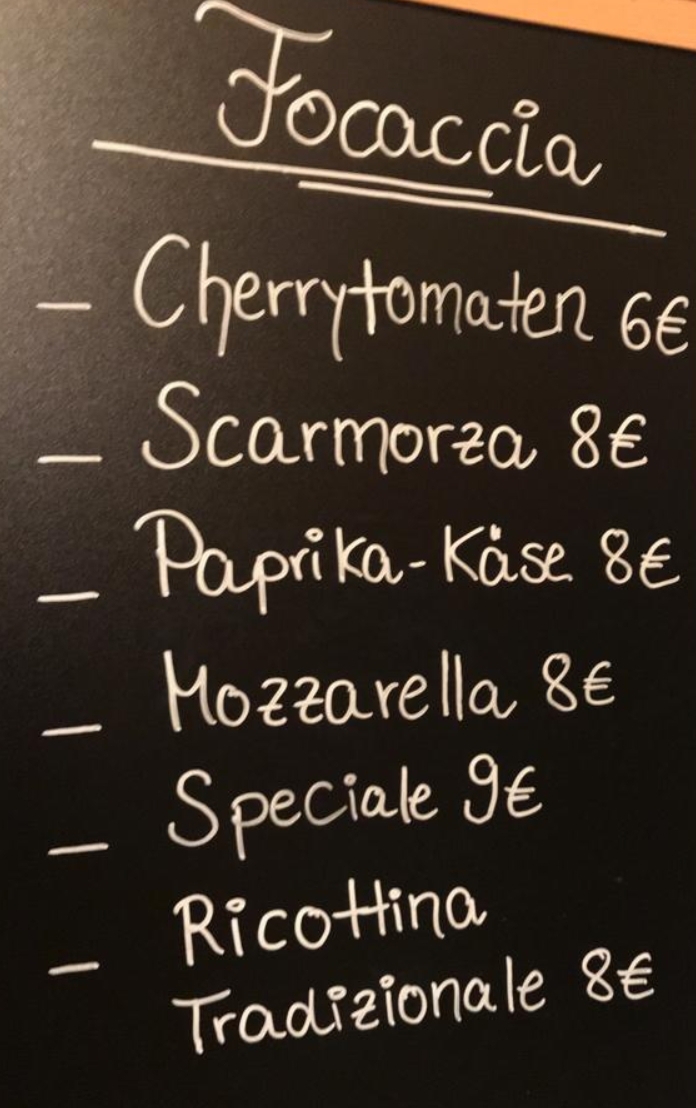 Focaccia
– Cherrytomaten 6€
– Scarmorza 8€
– Paprika-Käse 8€
– Mozzarella 8€
– Speciale 9€
– Ricottina
Tradizionale 8€